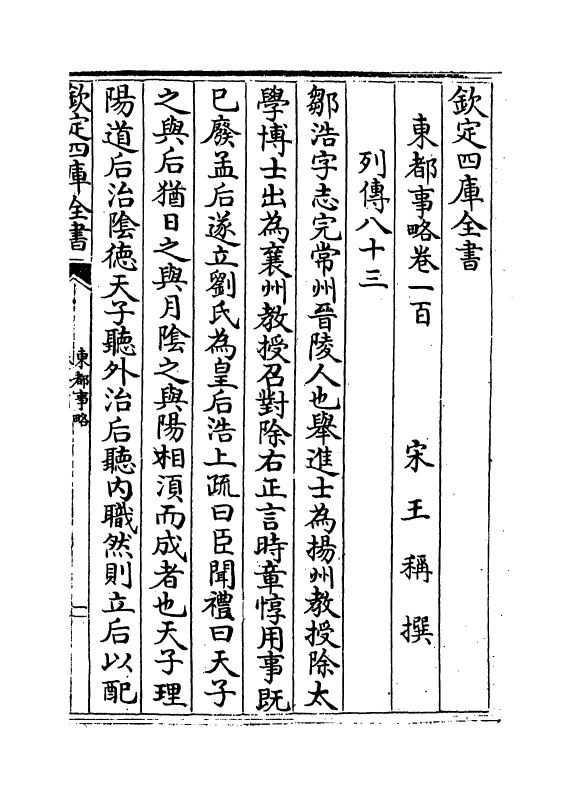 欽定四庫全書
東都事略卷一百
宋王稱撰
列傳八十三
鄒浩字志完常州晉陵人也舉進士為揚州教授除太
學博士出為襄州教授召對除右正言時章惇用事既
已廢孟后遂立劉氏為皇后浩上疏曰臣聞禮曰天子
之與后猶日之與月陰之與陽相湏而成者也天子理
陽道后治陰徳天子聽外治后聽内職然則立后以配
欽定四庫全書
東都事略